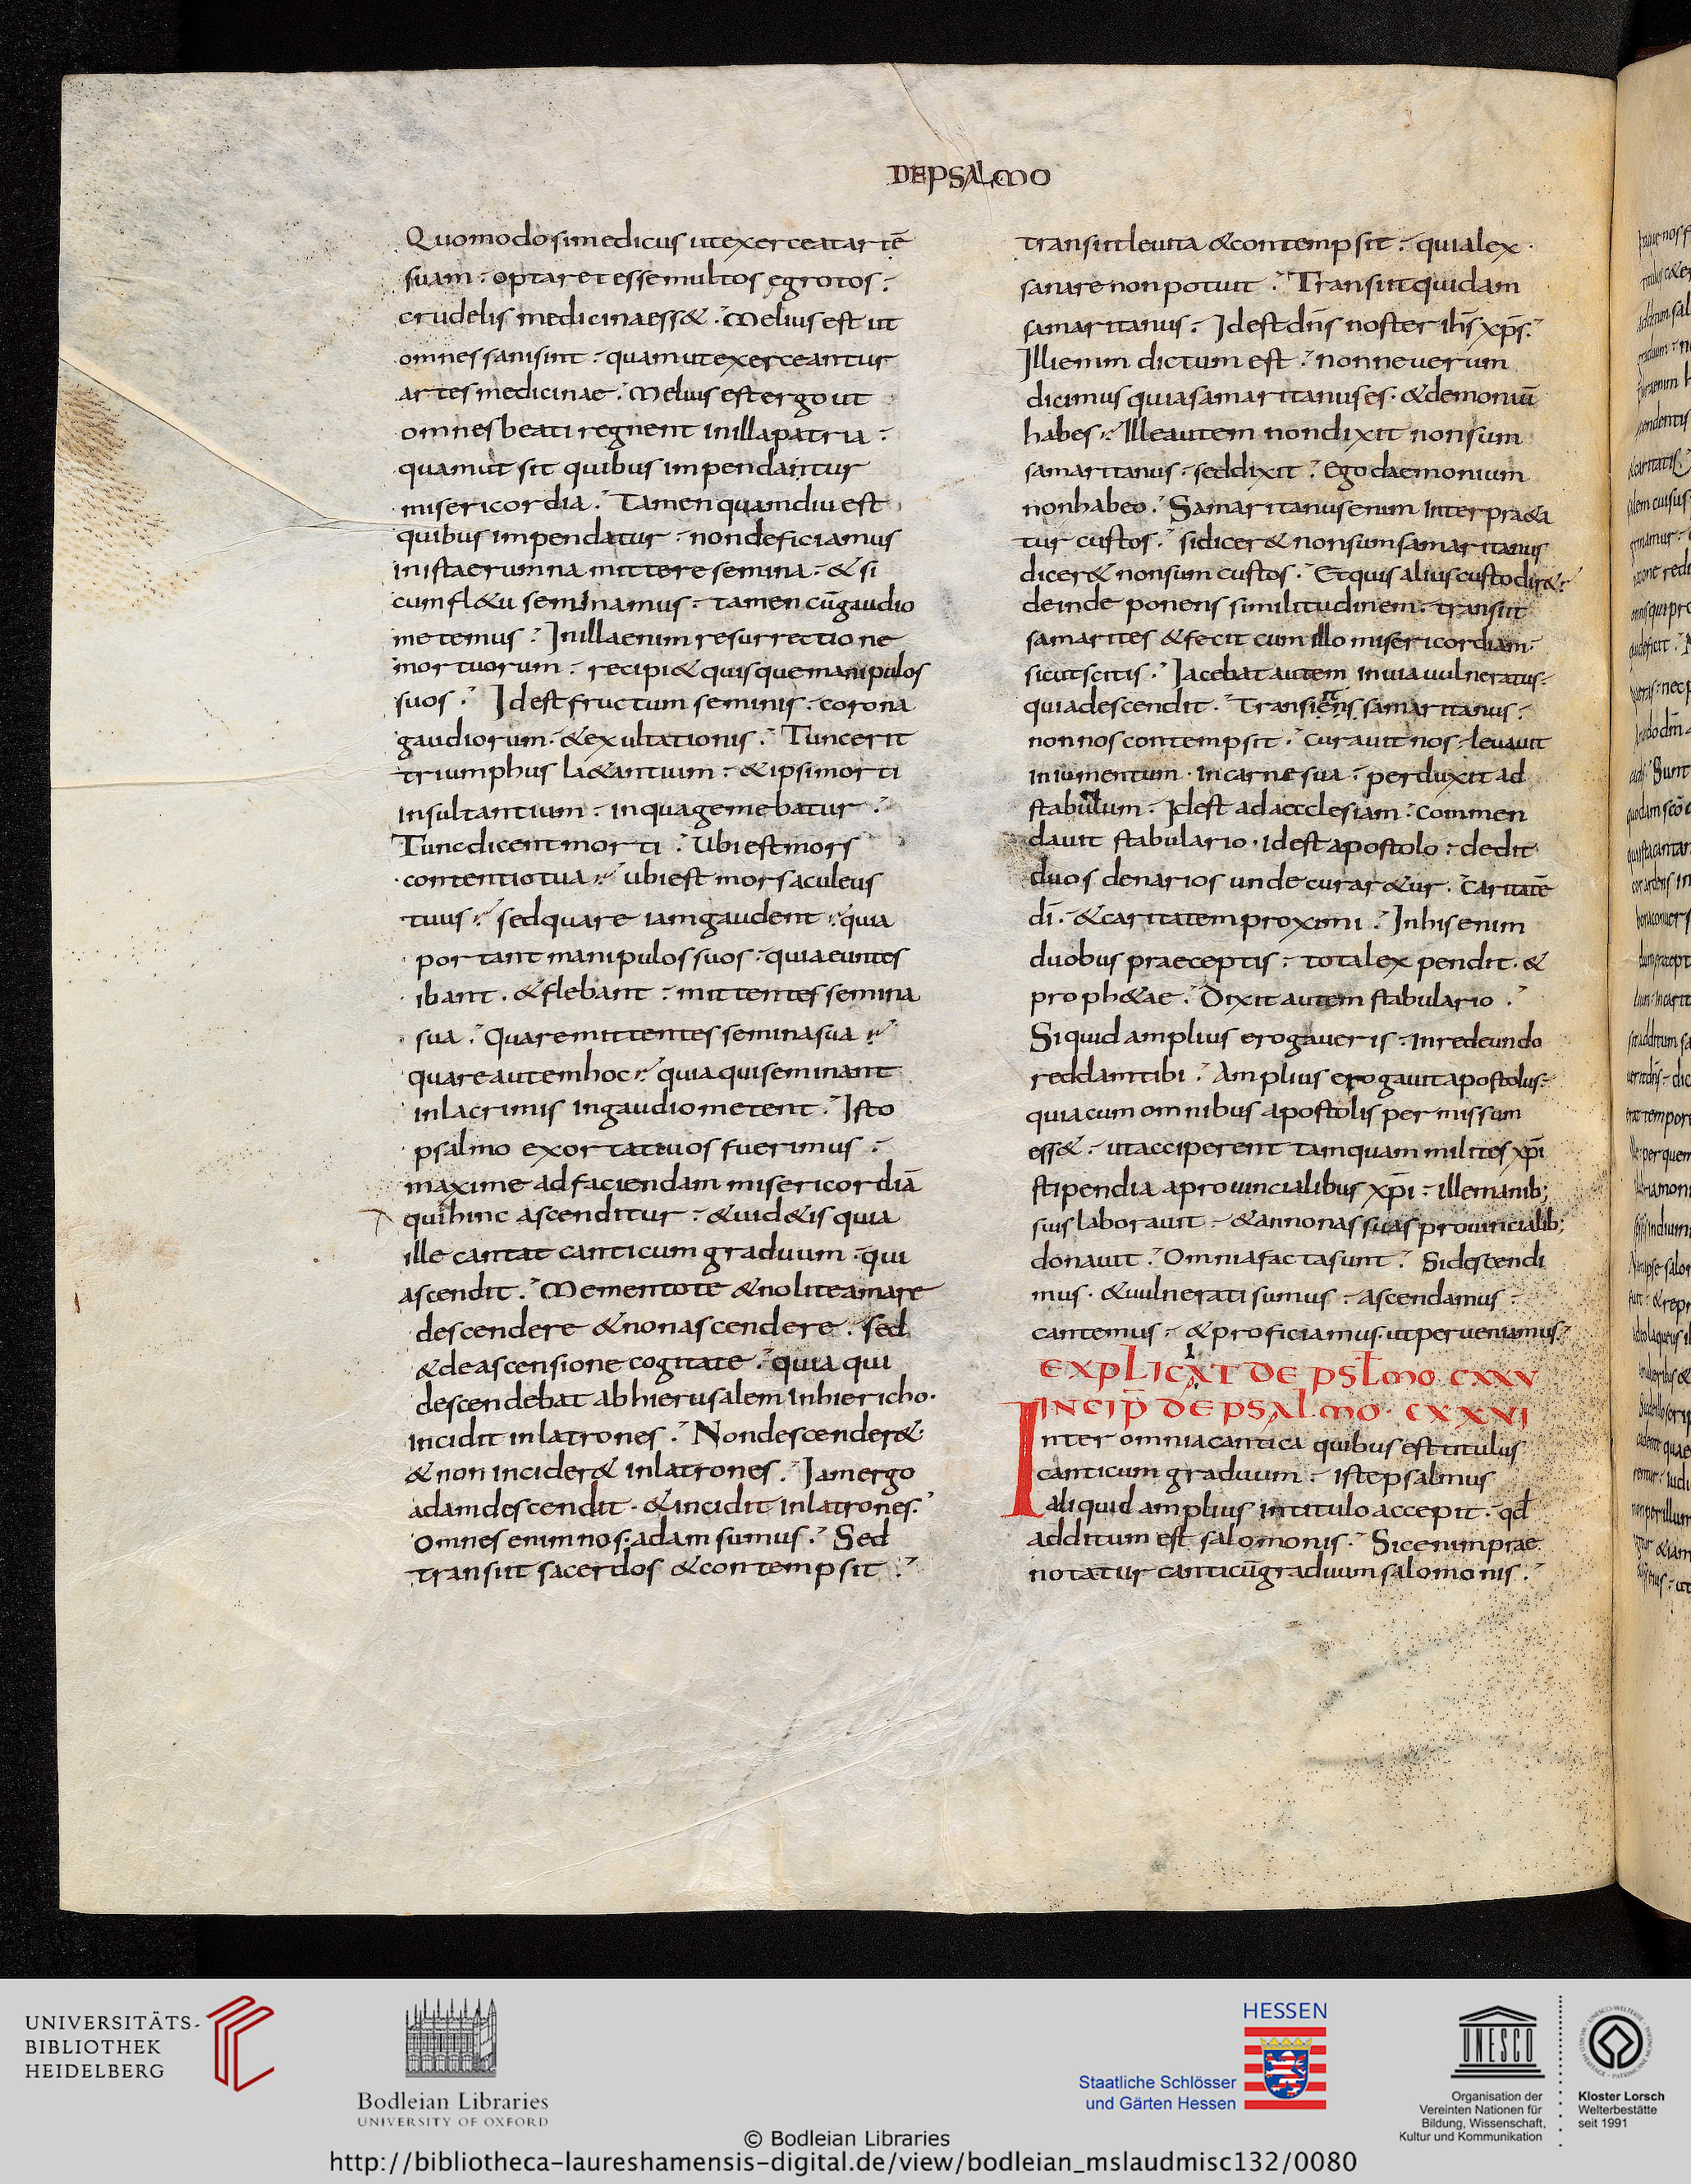 DE PSALMO
Quomodo si medicus ut exerceat artē
suam · optaret esse multos egrotos ·
crudelis medicina ess& · Melius est ut
omnes sani sint · quam ut exerceantur
artes medicinae · Melius est ergo ut
omnes beati regnent in illa patria ·
quam ut sit quibus impendantur
misericordia · Tamen quamdiu est
quibus impendatur · non deficiamus
in ista erumna mittere semina · & si
cum fl&u seminamus · tamen cū gaudio
metemus · In illa enim resurrectione
mortuorum · recipi& quisque manipulos
suos · Id est fructum seminis · corona
gaudiorum · & exultationis · Tunc erit
triumphus l&antium · & ipsi morti
insultantium · in qua gemebatur ·
Tunc dicent morti · Ubi est mors
contentio tua · ubi est mors aculeus
tuus · sed quare iam gaudent · quia
portant manipulos suos · quia euntes
ibant · & flebant · mittentes semina
sua · Quare mittentes semina sua ·
quare autem hoc · quia qui seminant
in lacrimis in gaudio metent · Isto
psalmo exortati uos fuerimus ·
maxime ad faciendam misericordiā
qui hinc ascenditur · & uid&is quia
ille cantat canticum graduum · qui
ascendit · Mementote & nolite amare
descendere & non ascendere · sed
& de ascensione cogitate · quia qui
descendebat ab hierusalem in hiericho ·
incidit in latrones · Non descender& ·
& non incider& in latrones · Iam ergo
adam descendit · & incidit in latrones ·
Omnes enim nos · adam sumus · Sed
transiit sacerdos & contempsit ·
transiit leuita & contempsit · quia lex ·
sanare non potuit · Transiit quidam
samaritanus · Id est dn̄s noster ih̄s xp̄s ·
Illi enim dictum est · nonne uerum
dicimus quia samaritanus es · & demoniū
habes · Ille autem non dixit non sum
samaritanus · sed dixit · Ego daemonium
non habeo · Samaritanus enim interpr&a
tur custos · si dicer& non sum samaritanus
dicer& non sum custos · Et quis alius custodir& ·
deinde ponens similitudinem · transiit
samarites & fecit cum illo misericordiam ·
sicut scitis · Iacebat autem in uia uulneratus ·
quia descendit · Transiens samaritanus ·
non nos contempsit · curauit nos · leuauit
in iumentum · in carne sua · perduxit ad
stabulum · Id est ad aecclesiam · Commen
dauit stabulario · id est apostolo · dedit
duos denarios unde curar&ur · Caritatē
dī · & caritatem proximi · In his enim
duobus praeceptis · tota lex pendit · &
proph&ae · Dixit autem stabulario ·
Si quid amplius erogaueris · in redeundo
reddam tibi · Amplius erogauit apostolus ·
quia cum omnibus apostolis permissum
ess& · ut acciperent tamquam milites xp̄i
stipendia a prouincialibus xp̄i · ille manib;
suis laborauit · & annonas suas prouincialib;
donauit · Omnia facta sunt · Si descendi
mus · & uulnerati sumus · ascendamus ·
cantemus · & proficiamus · ut perueniamus ·
EXPLICIT DE PSL̄MO CXXV
INCIP̄ DE PSALMO · CXXVI
Inter omnia cantica quibus est titulus
canticum graduum · iste psalmus
aliquid amplius in titulo accepit · qđ
additum est salomonis · Sic enim prae
notatur canticū graduum salomonis ·
UNIVERSITÄTS-
BIBLIOTHEK
HEIDELBERG
Bodleian Libraries
UNIVERSITY OF OXFORD
HESSEN
Staatliche Schlösser
und Gärten Hessen
UNESCO
Organisation der
Vereinten Nationen für
Bildung, Wissenschaft,
Kultur und Kommunikation
Kloster Lorsch
Welterbestätte
seit 1991
© Bodleian Libraries
http://bibliotheca-laureshamensis-digital.de/view/bodleian_mslaudmisc132/0080